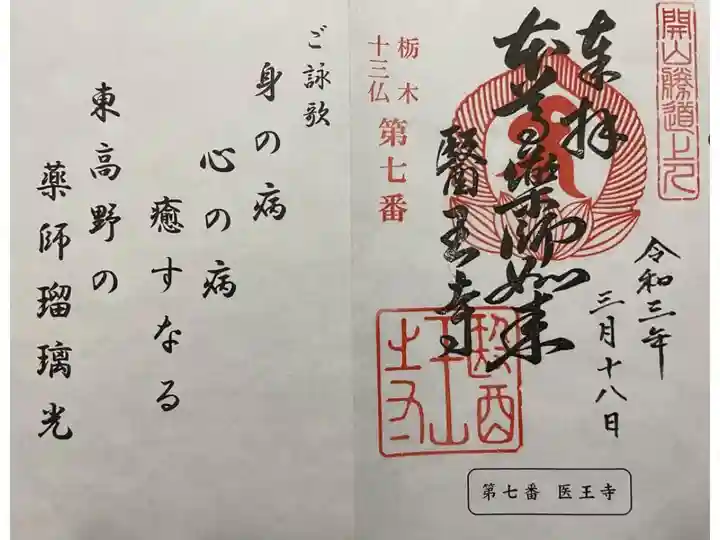 開山勝道上人
奉拝
令和三年
三月十八日
本尊薬師如来
醫王寺
栃木
十三仏
第七番
第七番 医王寺
ご詠歌
身の病
心の病
癒すなる
東高野の
薬師瑠璃光